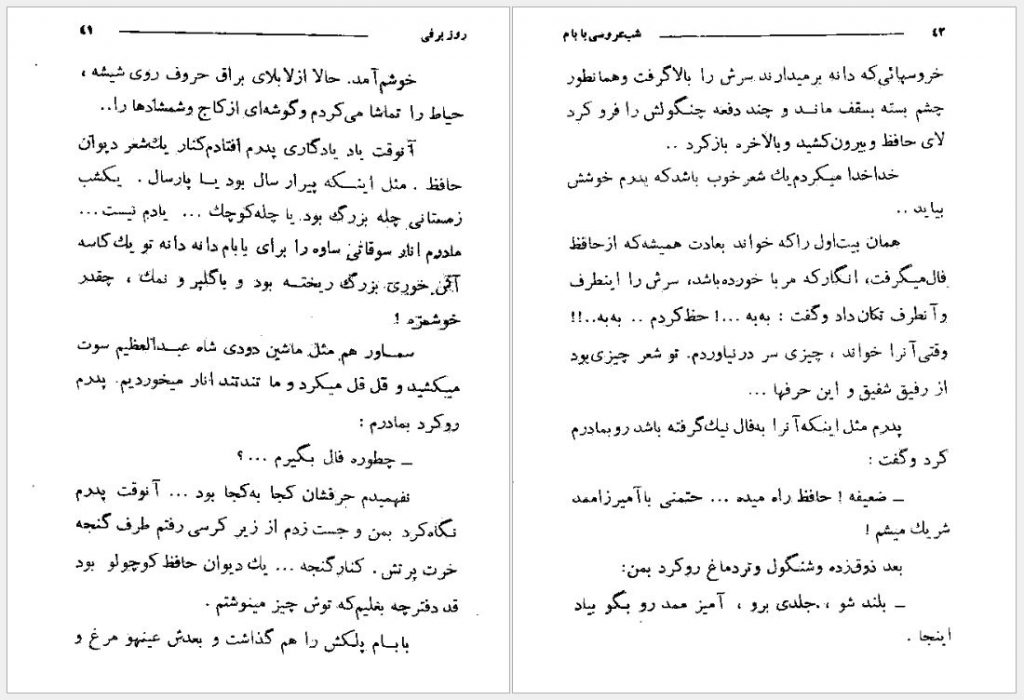 روز برفی ٤١
خوشم آمد. حالا از لابلای براق حروف روی شیشه ،
حیاط را تماشا می‌کردم و گوشه‌ای از کاج و شمشادها را..
آنوقت یاد یادگاری پدرم افتادم کنار یك شعر دیوان
حافظ . مثل اینـکه پیرار سال بود یـا پارسال . یـکشب
زمستانی چله بزرگ بود یا چله کوچك ... یادم نیست...
مادرم انار سوقاتی ساوه را برای بابام دانه دانه تو یك کاسه
آش خوری بزرگ ریختـه بود و با گلپر و نمك ، چقدر
خوشمزه !
سمـاور هم مثل ماشین دودی شاه عبـدالعظیم سوت
میـکشید و قل قل میـکرد و ما تندتند انار میخوردیم. پدرم
رو کرد بمادرم :
ــ چطوره فال بگیرم ... ؟
نفهمیدم حرفشان کجا به کجا بود ... آنوقت پدرم
نگاه کرد بمن و جست زدم از زیر کرسی رفتم طرف گنجه
خرت پرتش . کنار گنجه ... یك دیوان حافظ کوچولو بود
قد دفترچه بغلیم که توش چیز مینوشتم .
بابـام پلکش را هم گذاشت و بعدش عینهو مرغ و
٤٢ شب عروسی بابام
خروسهائی که دانه برمیدارند سرش را بالا گرفت و همانطور
چشم بسته بسقف مانـد و چند دفعه چنگولش را فرو کرد
لای حافظ و بیرون کشید و بالاخره باز کرد ..
خداخدا میکردم یك شعر خوب باشد که پدرم خوشش
بیاید ..
همان بیت اول را که خواند بعادت همیشه که از حافظ
فال میگرفت، انگار که مربا خورده باشد، سرش را اینطرف
و آنطرف تکان داد و گفت : به‌به ...! حظ کردم .. به‌به..!!
وقتی آنرا خواند ، چیزی سر درنیاوردم. تو شعر چیزی بود
از رفیق شفیق و این حرفها ...
پدرم مثل اینکه آنرا به فال نیك گرفته باشد رو بمادرم
کرد و گفت :
ــ ضعیفه ! حافظ راه میده ... حتمنی با آمیرزا ممد
شریك میشم !
بعد ذوق‌زده و شنگول و تردماغ رو کرد بمن:
ــ بلند شو ، جلدی برو ، آمیز ممد رو بگو بیاد
اینجا .